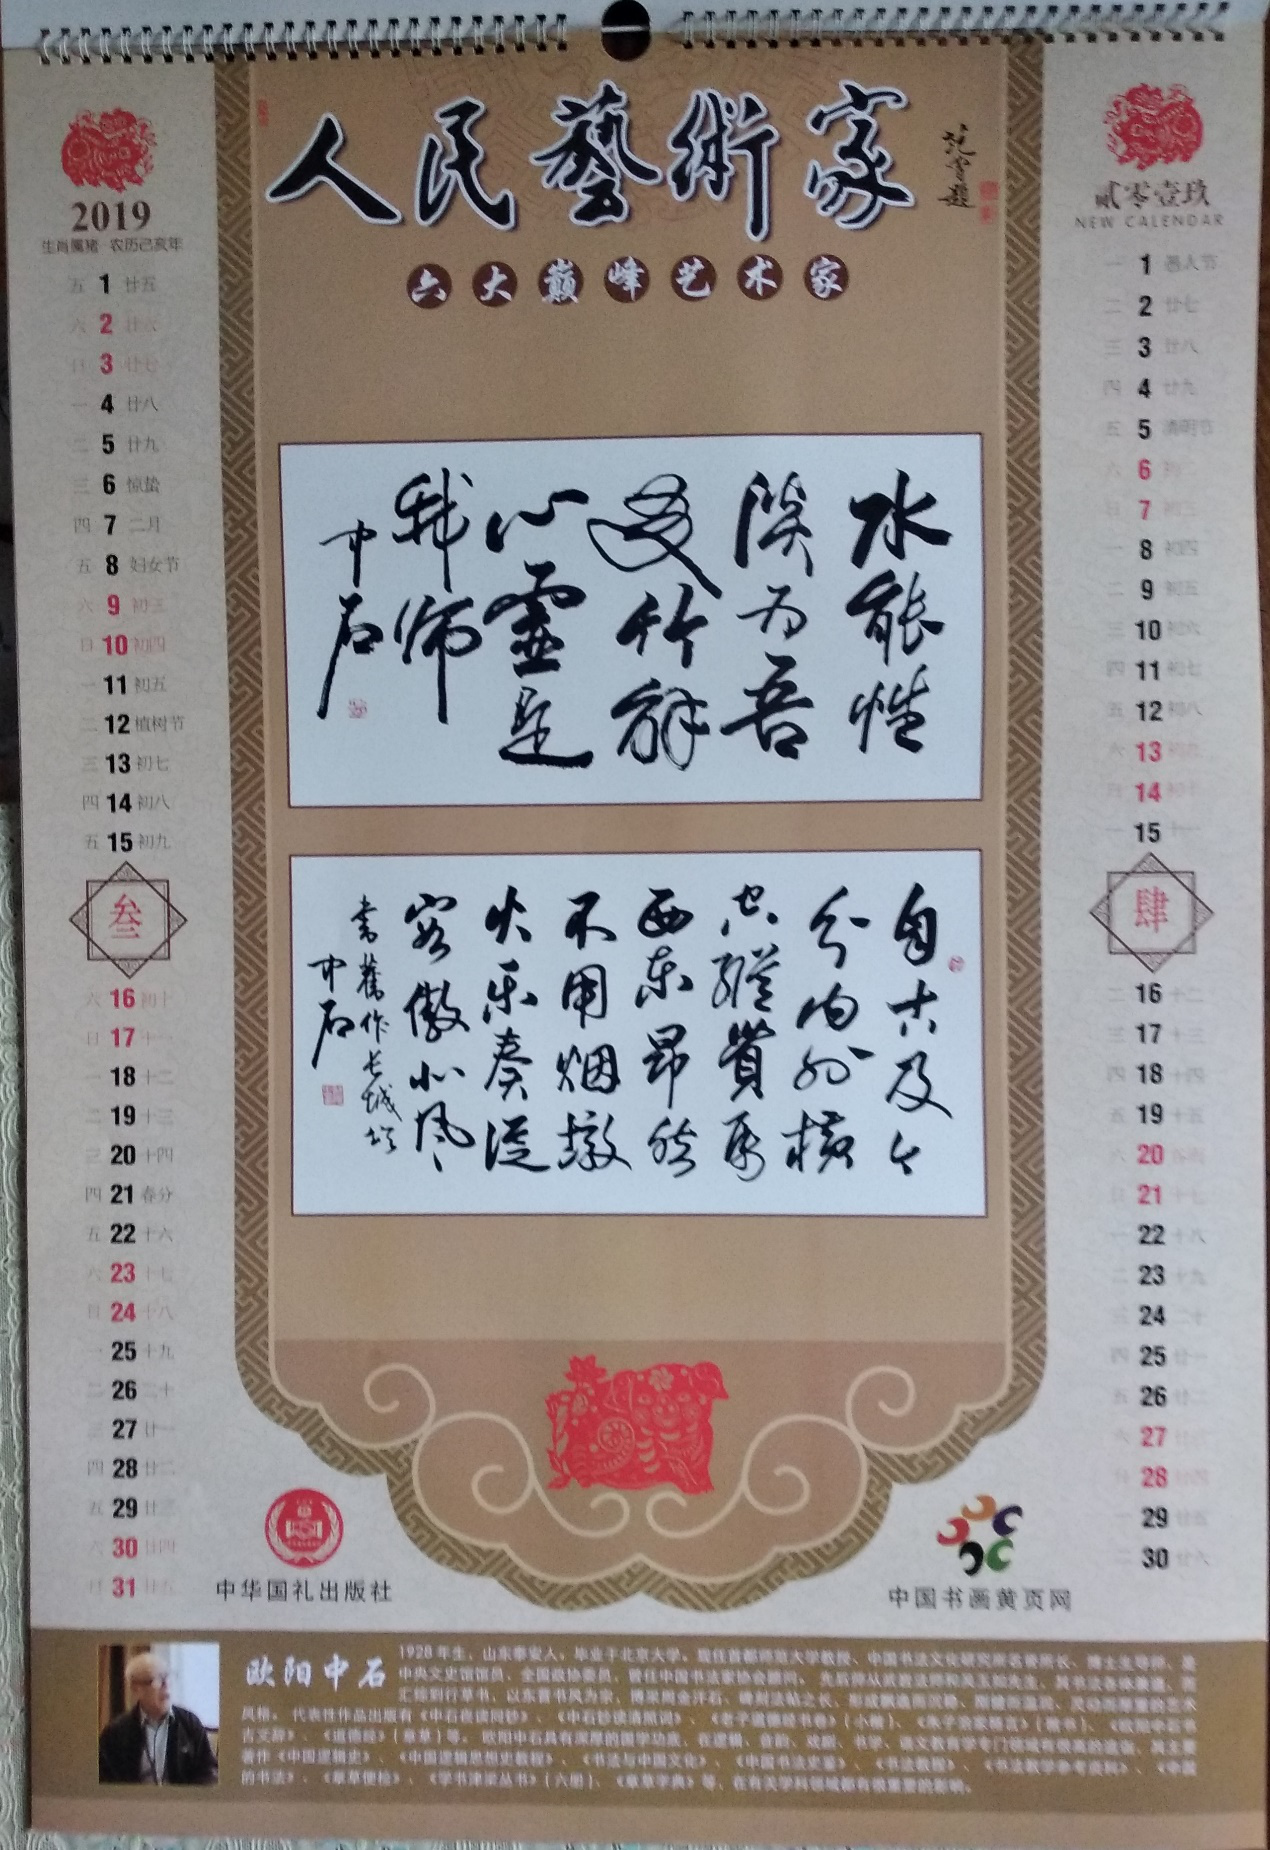 人民藝術家
范曾題
六大巅峰艺术家
2019
生肖属猪 农历己亥年
五 1 廿五
六 2 廿六
日 3 廿七
一 4 廿八
二 5 廿九
三 6 惊蛰
四 7 二月
五 8 妇女节
六 9 初三
日 10 初四
一 11 初五
二 12 植树节
三 13 初七
四 14 初八
五 15 初九
叁
六 16 初十
日 17 十一
一 18 十二
二 19 十三
三 20 十四
四 21 春分
五 22 十六
六 23 十七
日 24 十八
一 25 十九
二 26 二十
三 27 廿一
四 28 廿二
五 29 廿三
六 30 廿四
日 31 廿五
贰零壹玖
NEW CALENDAR
一 1 愚人节
二 2 廿七
三 3 廿八
四 4 廿九
五 5 清明节
六 6 初二
日 7 初三
一 8 初四
二 9 初五
三 10 初六
四 11 初七
五 12 初八
六 13 初九
日 14 初十
一 15 十一
肆
二 16 十二
三 17 十三
四 18 十四
五 19 十五
六 20 谷雨
日 21 十七
一 22 十八
二 23 十九
三 24 二十
四 25 廿一
五 26 廿二
六 27 廿三
日 28 廿四
一 29 廿五
二 30 廿六
水能性
淡为吾
友竹解
心靈是
我师
中石
自古及今
分内外横
空縱贯
西東昂然
不用烟墩
火乐奏遥
客傲北风
书舊作长城
中石
中华国礼出版社
中国书画黄页网
欧阳中石
1928年生，山东泰安人。毕业于北京大学。现任首都师范大学教授、中国书法文化研究所名誉所长、博士生导师，
中央文史馆馆员、全国政协委员，曾任中国书法家协会顾问。
风格。代表性作品出版有《中石夜读词钞》、《中石钞读清照词》、《老子道德经书卷》（小楷）、《朱子治家格言》（楷书）、《欧阳中石书
古文辞》、《道德经》（章草）等。欧阳中石具有深厚的国学功底，
著作《中国逻辑史》、《中国逻辑思想史教程》、《书法与中国文化》、《中国书法史鉴》、《书法教程》、《书法教学参考资料》、《中国
的书法》、《章草便检》、《学书津梁丛书》（六册）、《章草字典》等，在有关学科领域都有很重要的影响。